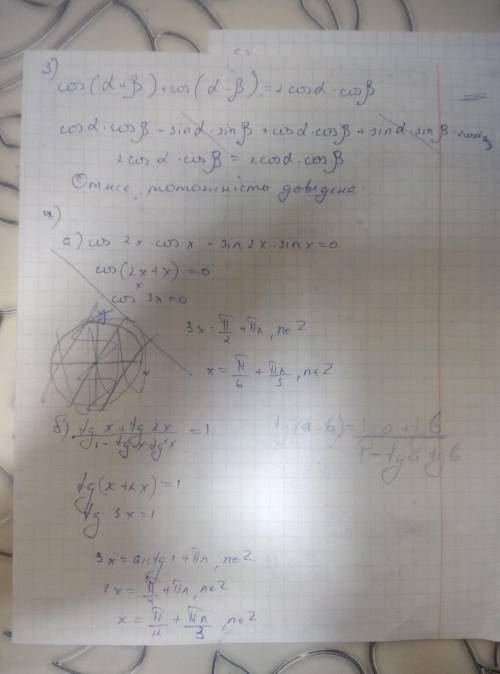 3)
cos(α+β)+cos(α-β)=2cosα·cosβ
cosα·cosβ - sinα·sinβ + cosα·cosβ + sinα·sinβ =
2cosα·cosβ = 2cosα·cosβ
Отже, тотожність доведена.
4)
а) cos 2x·cos x - sin 2x·sin x = 0
cos(2x+x) = 0
cos 3x = 0
3x = π/2 + πn, n∈Z
x = π/6 + πn/3, n∈Z
y
x
б) (tg x + tg 2x)/(1 - tg x tg 2x) = 1
tg(x+2x) = 1
tg 3x = 1
3x = arctg 1 + πn, n∈Z
3x = π/4 + πn, n∈Z
x = π/12 + πn/3, n∈Z